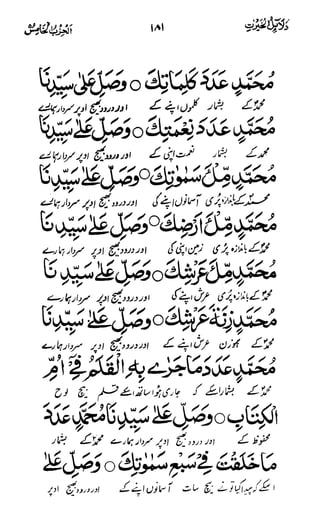 دلائل الخیرات ۱۸۱ الحزب الخامس
مُحَمَّدٍ عَدَدَ كَلِمَاتِكَ ○ وَصَلِّ عَلٰى سَيِّدِنَا
محمد کے بشمار کلموں اپنے کے اور درود بھیج اوپر سردار ہمارے
مُحَمَّدٍ عَدَدَ نِعْمَتِكَ ○ وَصَلِّ عَلٰى سَيِّدِنَا
محمد کے بشمار نعمت اپنی کے اور درود بھیج اوپر سردار ہمارے
مُحَمَّدٍ مِّلْءَ سَمٰوٰتِكَ ○ وَصَلِّ عَلٰى سَيِّدِنَا
محمد کے باندازہ پُری آسمانوں اپنے کی اور درود بھیج اوپر سردار ہمارے
مُحَمَّدٍ مِّلْءَ اَرْضِكَ ○ وَصَلِّ عَلٰى سَيِّدِنَا
محمد کے باندازہ پُری زمین اپنی کی اور درود بھیج اوپر سردار ہمارے
مُحَمَّدٍ مِّلْءَ عَرْشِكَ ○ وَصَلِّ عَلٰى سَيِّدِنَا
محمد کے باندازہ پُری عرش اپنے کی اور درود بھیج اوپر سردار ہمارے
مُحَمَّدٍ زِنَةَ عَرْشِكَ ○ وَصَلِّ عَلٰى سَيِّدِنَا
محمد کے بوزن عرش اپنے کے اور درود بھیج اوپر سردار ہمارے
مُحَمَّدٍ عَدَدَ مَا جَرٰى بِهِ الْقَلَمُ فِيْٓ اُمِّ
محمد کے بشمار اسکے کہ جاری ہوا ساتھ اسکے قلم بیچ لوح
الْكِتَابِ ○ وَصَلِّ عَلٰى سَيِّدِنَا مُحَمَّدٍ عَدَدَ
محفوظ کے اور درود بھیج اوپر سردار ہمارے محمد کے بشمار
مَا خَلَقْتَ فِيْ سَبْعِ سَمٰوٰتِكَ ○ وَصَلِّ عَلٰى
اسکے کہ پیدا کیا تونے بیچ سات آسمانوں اپنے کے اور درود بھیج اوپر